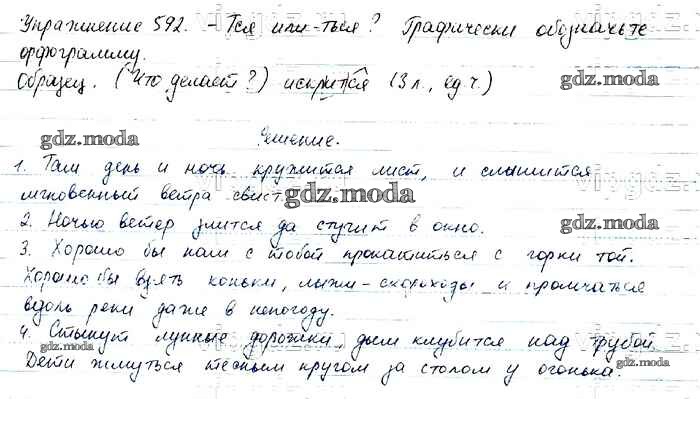 Упражнение 592. -Тся или -ться? Графически обозначьте
орфограмму.
Образец. (Что делает?) искрится (3 л., ед. ч.)
gdz.moda
Решение.
gdz.moda
1. Там день и ночь кружится лист, и слышится
мгновенный ветра свист.
gdz.moda
2. Ночью ветер злится да стучит в окно.
gdz.moda
3. Хорошо бы нам с тобой прокатиться с горки той.
Хорошо бы взять коньки, лыжи-скороходы и промчаться
вдоль реки даже в непогоду.
4. Стынут лунные дорожки, дым клубится над трубой.
gdz.moda
gdz.moda
Дети жмуться тесным кругом за столом у огонька.